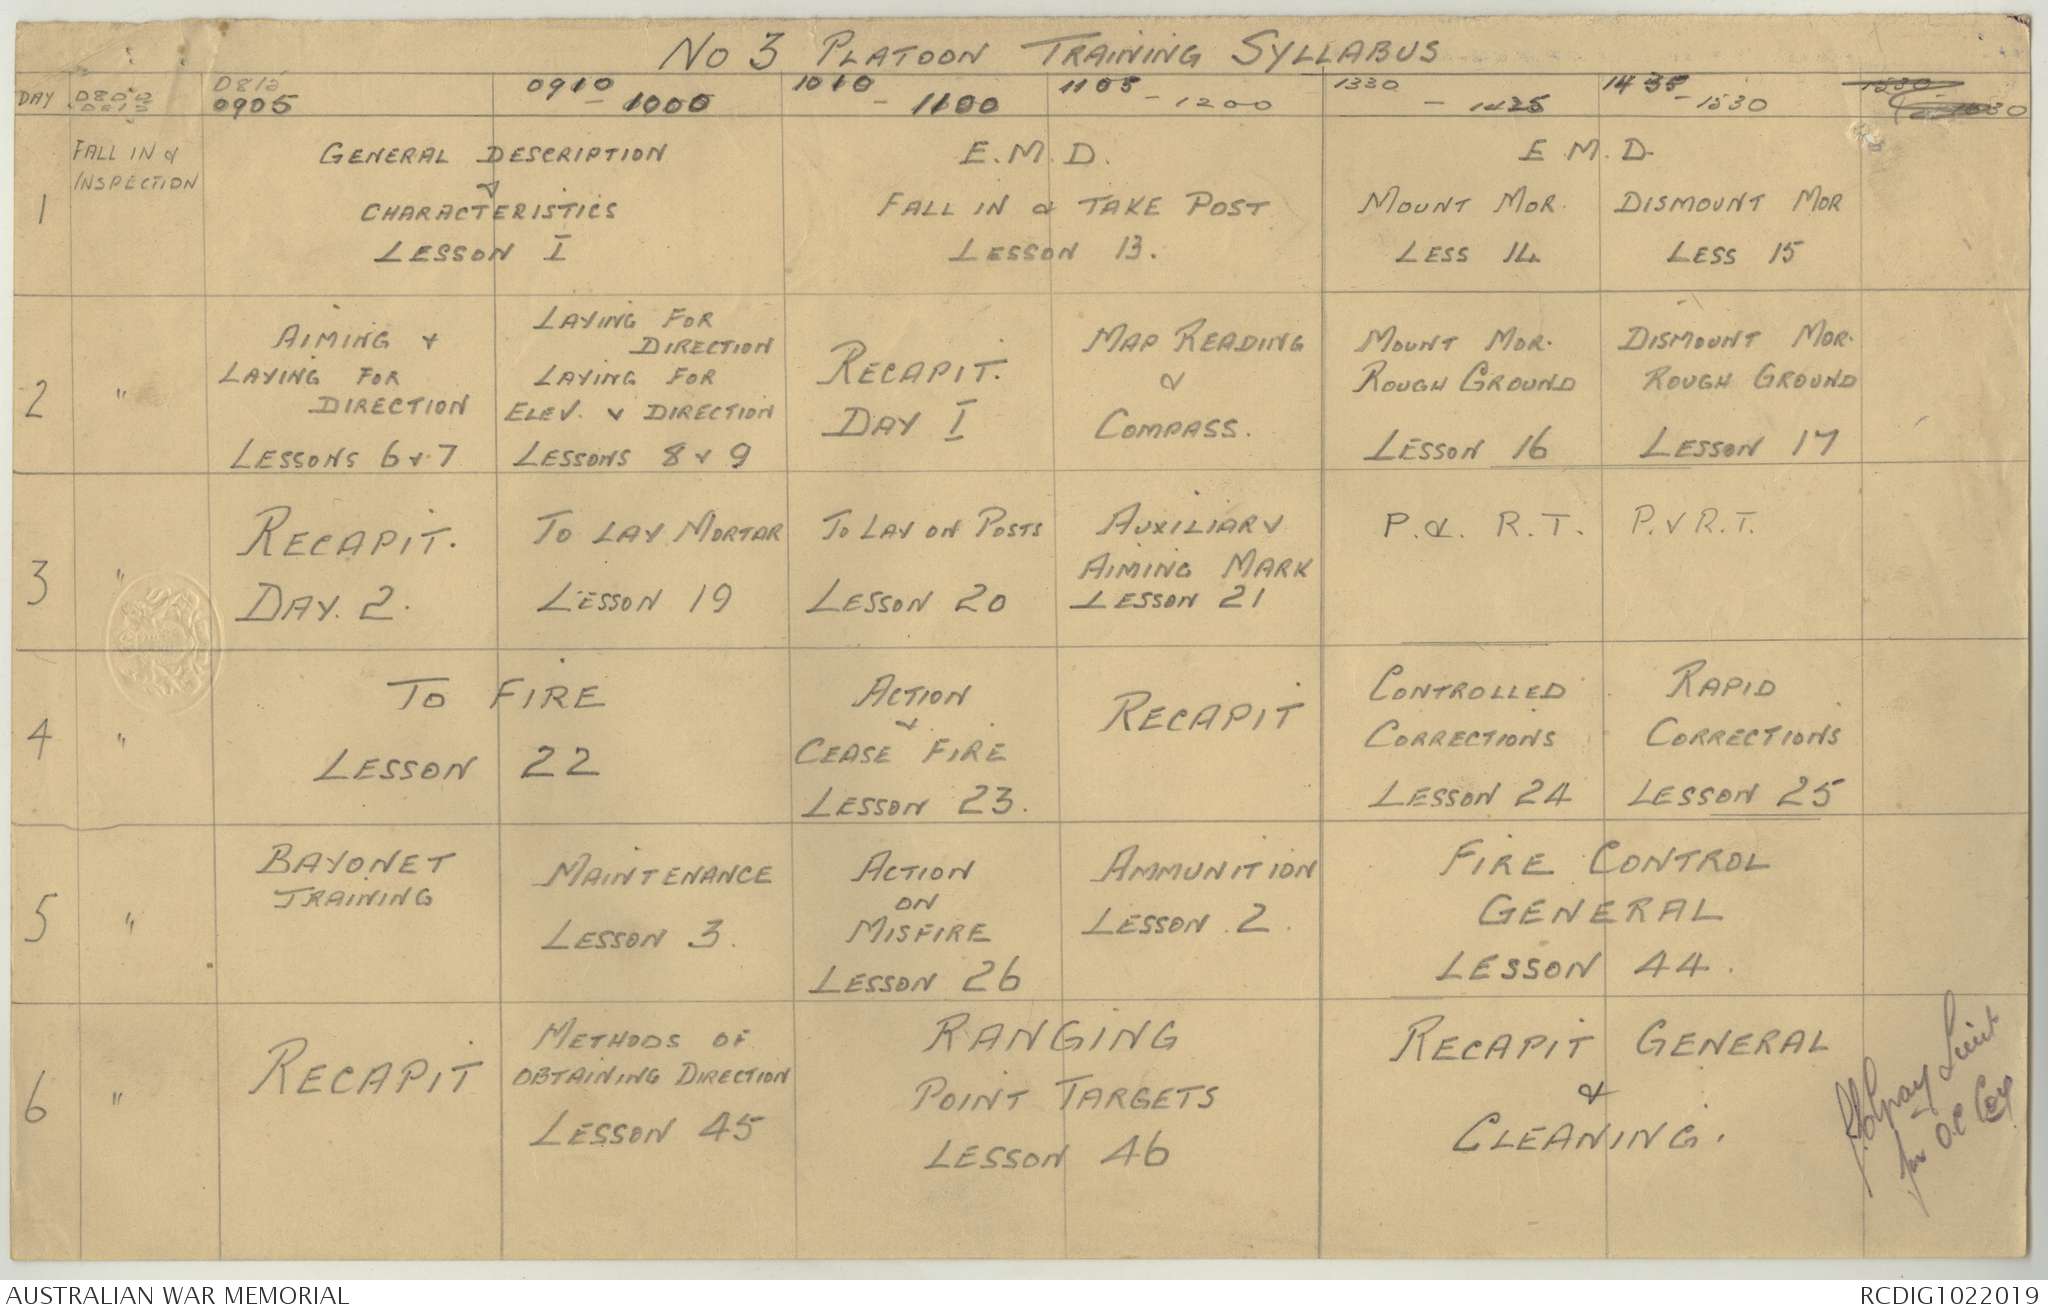 No 3 PLATOON TRAINING SYLLABUS
DAY 0800 0815 0910 1010 1105 1330 1435 1530
0815 0905 - 1000 - 1100 - 1200 - 1425 - 1530 1630
1
FALL IN &
INSPECTION
GENERAL DESCRIPTION
&
CHARACTERISTICS
LESSON I
E.M.D.
FALL IN & TAKE POST
LESSON 13.
E.M.D.
MOUNT MOR.
LESS 14
DISMOUNT MOR
LESS 15
2
"
AIMING &
LAYING FOR
DIRECTION
LESSONS 6 & 7
LAYING FOR
DIRECTION
LAYING FOR
ELEV. & DIRECTION
LESSONS 8 & 9
RECAPIT.
DAY I
MAP READING
&
COMPASS.
MOUNT MOR.
ROUGH GROUND
LESSON 16
DISMOUNT MOR.
ROUGH GROUND
LESSON 17
3
"
RECAPIT.
DAY. 2.
TO LAY MORTAR
LESSON 19
TO LAY ON POSTS
LESSON 20
AUXILIARY
AIMING MARK
LESSON 21
P. & R.T.
P. & R.T.
4
"
TO FIRE
LESSON 22
ACTION
&
CEASE FIRE
LESSON 23.
RECAPIT
CONTROLLED
CORRECTIONS
LESSON 24
RAPID
CORRECTIONS
LESSON 25
5
"
BAYONET
TRAINING
MAINTENANCE
LESSON 3.
ACTION
ON
MISFIRE
LESSON 26
AMMUNITION
LESSON 2.
FIRE CONTROL
GENERAL
LESSON 44.
6
"
RECAPIT
METHODS OF
OBTAINING DIRECTION
LESSON 45
RANGING
POINT TARGETS
LESSON 46
RECAPIT GENERAL
&
CLEANING.
Gray Lieut
for O.C Coy
AUSTRALIAN WAR MEMORIAL
RCDIG1022019